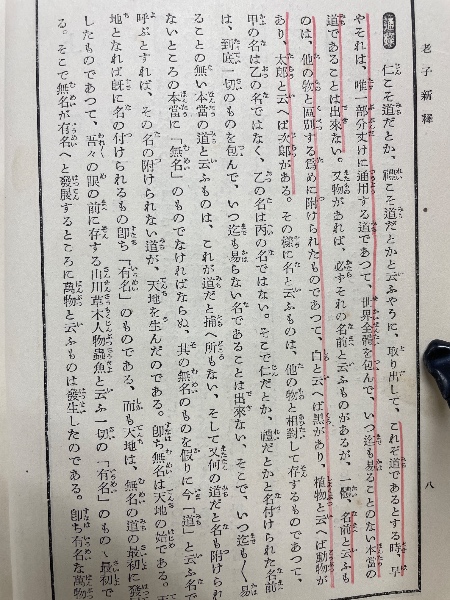 老子新釋
八
通釋
仁こそ道だとか、禮こそ道だとかと云ふやうに、取り出して、これぞ道であるとする時、早
やそれは、唯一部分丈けに通用する道であつて、世界全體を包んで、いつ迄も易ることのない本當の
道であることは出來ない。又物があれば、必ずそれの名前と云ふものがあるが、一體、名前と云ふも
のは、他の物と區別する爲めに附けられたものであつて、白と云へば黑があり、植物と云へば動物が
あり、太郎と云へば次郎がある。その樣に名と云ふものは、他の物と相對して存するものであつて、
甲の名は乙の名ではなく、乙の名は丙の名ではない。そこで仁だとか、禮だとかと名付けられた名前
は、到底一切のものを包んで、いつ迄も易らない名であることは出來ない、そこで、いつ迄も〱易
ることの無い本當の道と云ふものは、これが道だと捕へ所もない、そして又何の道だと名も附けられ
ないところの本當に「無名」のものでなければならぬ、其の無名のものを假りに今「道」と云ふ名で
呼ぶとすれば、その名の附けられない道が、天地を生んだのである。卽ち無名は天地の始である。天
地となれば旣に名の付けられるもの卽ち「有名」のものである、而も天地は、無名の道の最初に發
したものであつて、吾々の眼の前に存する山川草木人物蟲魚と云ふ一切の「有名」のもの、最初で
る。そこで無名が有名へと發展するところに萬物と云ふものは發生したのである。卽ち有名な萬物